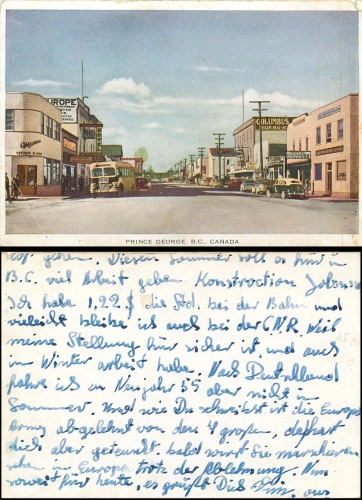 EUROPE
COLUMBUS
PRINCE GEORGE, B.C., CANADA
gehen. Diesen Sommer soll es hier in
B.C. viel Arbeit geben Konstruction Jobs
Ich habe 1,22 $ die Std. bei der Bahn und
vieleicht bleibe ich auch bei der CNR weil
meine Stellung hier sicher ist, und auch
im Winter arbeit habe. Nach Deutschland
fahre ich in Neujahr 55 aber nicht im
Sommer. Und wie Du schreibst ist die Europa
Army abgelehnt von den 4 großen,
dich aber geteuscht bald wirst Sie marschieren
in Europa trotz der Ablehnung. Nun
soweit für heute, es grüßt Dich